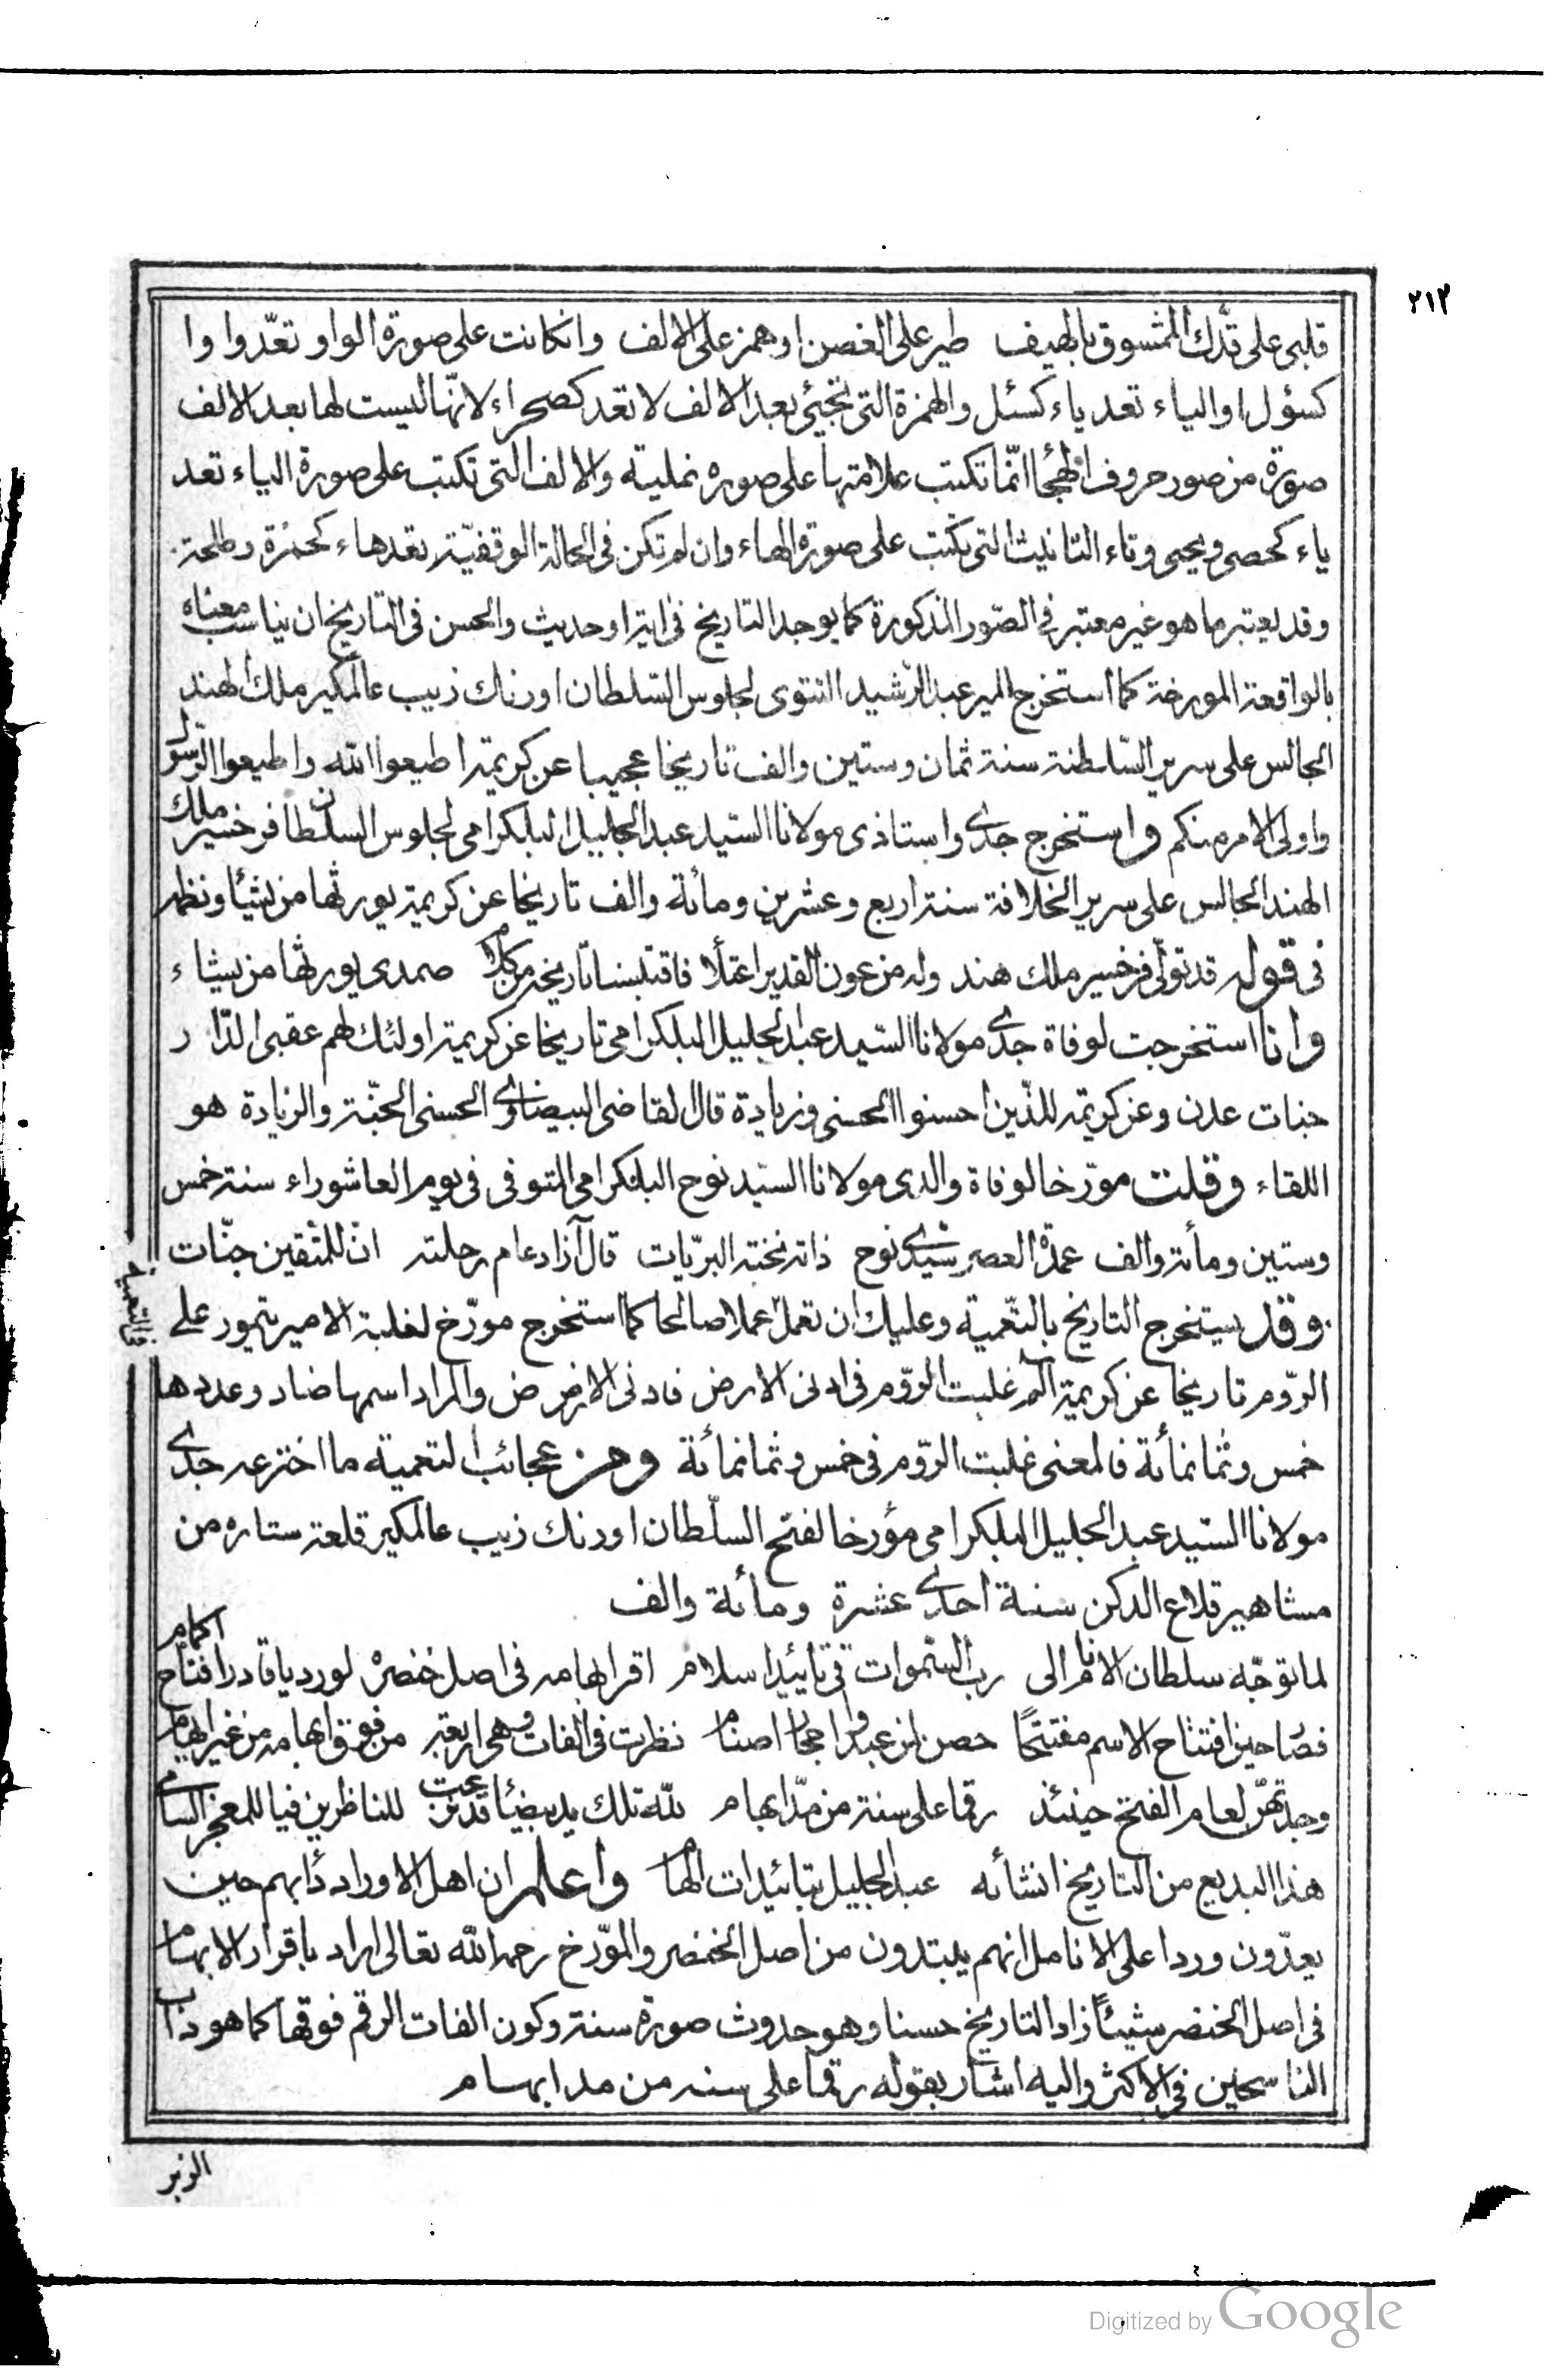 ٢١٢
قلبى على قدّك الممشوق بالهيف طير على الغصن او همز على الالف وانكانت على صورة الواو تعدّ واوا
كسؤل او الياء تعد ياء كسئل والهمزة التى تجيئ بعد الالف لا تعد كصحراء لانّها ليست لها بعد الالف
صورة من صور حروف التهجّا انّما تكتب علامتها على صورة نملية والالف التى تكتب على صورة الياء تعد
ياء كحصى ويحيى وتاء التانيث التى تكتب على صورة الهاء وان لم تكن فى الحالة الوقفيّة تعد هاء كحمزة وطلحة
وقد يعتبر ما هو غير معتبر فى الصّور المذكورة كما يوجد التاريخ فى اية او حديث والحسن فى التاريخ ان يناسب معناه
بالواقعة المورخة كما استخرج المير عبد الرّشيد التتوى لجلوس السّلطان اورنك زيب عالمكير ملك الهند
الجالس على سرير السّلطنة سنة ثمان وستين والف تاريخا عجيبا عن كريمة اطيعوا الله واطيعوا الرّسول
واولى الامر منكم واستخرج جدى واستاذى مولانا السّيد عبد الجليل البلكرامى لجلوس السلطان فرخسير ملك
الهند الجالس على سرير الخلافة سنة اربع وعشرين ومائة والف تاريخا عن كريمة يورثها من يشاء ونظم
فى قوله قد تولّى فرخسير ملك هند وله من عون القدير اعتلا فاقتبسنا تاريخه من كلام صمدى يورثها من يشاء
وانا استخرجت لوفاة جدى مولانا السّيد عبد الجليل البلكرامى تاريخا عن كريمة اولئك لهم عقبى الدّار
جنات عدن وعن كريمة للذّين احسنوا الحسنى وزيادة قال القاضى البيضاوى الحسنى الجنّة والزيادة هو
اللقاء وقلت مورّخا لوفاة والدى مولانا السّيد نوح البلكرامى المتوفى فى يوم العاشوراء سنة خمس
وستين ومأة والف عمدة العصر سيّدى نوح ذاته نخبة البريّات قال آزاد عام رحلته انّ للمتّقين جنّات
وقد يستخرج التاريخ بالتّعمية وعليك ان تعمل عملا صالحا كما استخرج مورّخ لغلبة الامير تيمور على
الرّوم تاريخا عن كريمة الم غلبت الرّوم فى ادنى الارض فادنى الارض ض والمراد اسمها ضاد وعددها
خمس وثمانمأئة فالمعنى غلبت الرّوم فى خمس وثمانمائة ومن عجائب التعمية ما اخترعه جدى
مولانا السّيد عبد الجليل البلكرامى مؤرخا لفتح السلّطان اورنك زيب عالمكير قلعة ستاره من
مشاهير قلاع الدكن سنة احدى عشرة ومائة والف
لما توجّه سلطان الانام الى ربّ السّموات فى تاييد اسلام اقر ابهامه فى اصل خنصره لورد يا قادر افتاح اكمام
فصار حين افتتاح الاسم مفتتحًا حصن لمن عبدوا احجار اصنام نظرت فى الفات وهى اربعة من فوق ابهامه من غير ايهام
وجدتهنّ لعام الفتح حينئذ رقما على سنة من مدّ ابهام للّه تلك يد بيضاء قد نزعت للناظرين فيا للمعجز السامى
هذا البديع من التاريخ انشأه عبد الجليل بتائيدات الهام واعلم ان اهل الاوراد دأبهم حين
يعدّون وردا على الانامل انهم يبتدون من اصل الخنصر والمورّخ رحمه الله تعالى اراد باقرار الابهام
فى اصل الخنصر شيئًا زاد التاريخ حسنا وهو حدوث صورة سنة وكون الفات الرقم فوقها كما هو داب
الناسخين فى الاكثر واليه اشار بقوله رقما على سنه من مد ابهام
الزبر
Digitized by Google